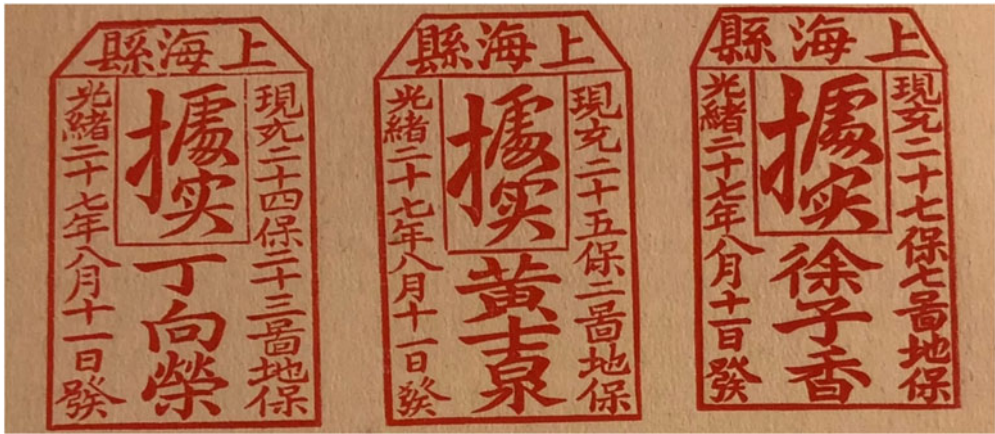 上海縣
現充二十四保二十三啚地保
據实
丁向榮
光緒二十七年八月十一日發
上海縣
現充二十五保二啚地保
據实
黃士泉
光緒二十七年八月十一日發
上海縣
現充二十七保七啚地保
據实
徐子香
光緒二十七年八月十一日發